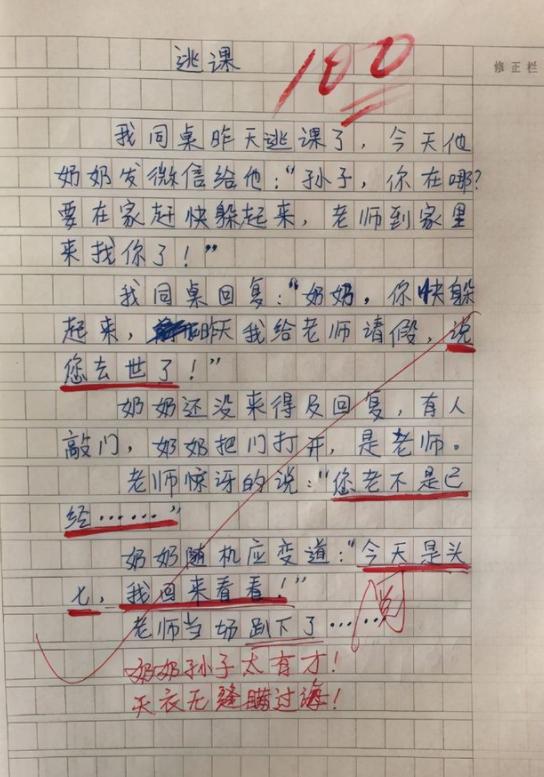 逃课
100
修正栏
我同桌昨天逃课了，今天他
奶奶发微信给他："孙子，你在哪？
要在家赶快躲起来，老师到家里
来找你了！"
我同桌回复："奶奶，你快躲
起来，昨天我给老师请假，说
您去世了！"
奶奶还没来得及回复，有人
敲门，奶奶把门打开，是老师。
老师惊讶的说："您老不是已
经……"
奶奶随机应变道："今天是头
七，我回来看看！"
老师当场趴下了……
阅
奶奶孙子太有才！
天衣无缝瞒过海！